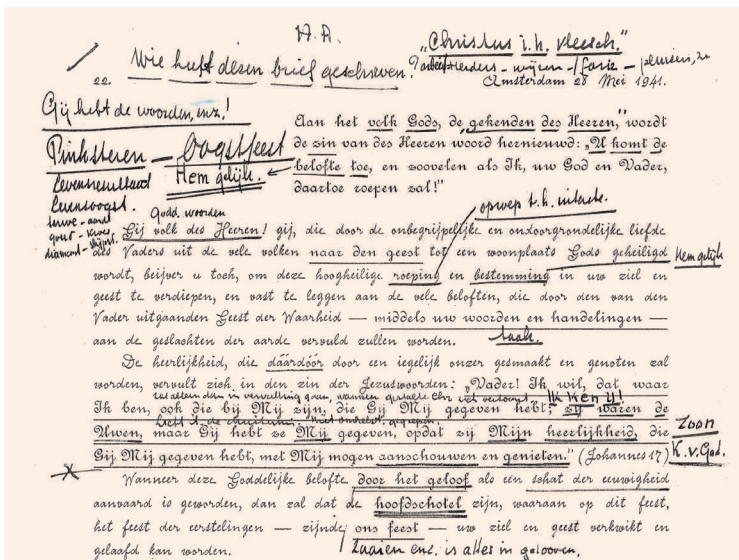 H.R.
"Christus i.h. vleesch."
Wie heeft dezen brief geschreven?
22.
Amsterdam 28 Mei 1941.
Gij hebt de woorden, enz.!
Aan het volk Gods, de "gekenden des Heeren," wordt
de zin van des Heeren woord hernieuwd: „U komt de
belofte toe, en zoovelen als Ik, uw God en Vader,
daartoe roepen zal!"
Pinksteren — Oogstfeest
Hem gelijk.
Levensresultaat
Levensoogst.
Godd. woorden
opwep t.h. uiterste.
Gij volk des Heeren! gij, die door de onbegrijpelijke en ondoorgrondelijke liefde
des Vaders uit de vele volken naar den geest tot een woonplaats Gods geheiligd
Hem gelijk
wordt, beijver u toch, om deze hoogheilige roeping en bestemming in uw ziel en
geest te verdiepen, en vast te leggen aan de vele beloften, die door den van den
Vader uitgaanden Geest der Waarheid — middels uw woorden en handelingen —
aan de geslachten der aarde vervuld zullen worden.
taak.
De heerlijkheid, die dáárdóór door een iegelijk onzer gesmaakt en genoten zal
worden, vervult zich in den zin der Jezuswoorden: „Vader! Ik wil, dat waar
Ik ben, ook die bij Mij zijn, die Gij Mij gegeven hebt; zij waren de
Uwen, maar Gij hebt ze Mij gegeven, opdat zij Mijn heerlijkheid, die
Zoon
Gij Mij gegeven hebt, met Mij mogen aanschouwen en genieten." (Johannes 17)
K.v.God.
Wanneer deze Goddelijke belofte door het geloof als een schat der eeuwigheid
aanvaard is geworden, dan zal dat de hoofdschotel zijn, waaraan op dit feest,
het feest der eerstelingen — zijnde ons feest — uw ziel en geest verkwikt en
gelaafd kan worden.
enz. is alles in gelooven.